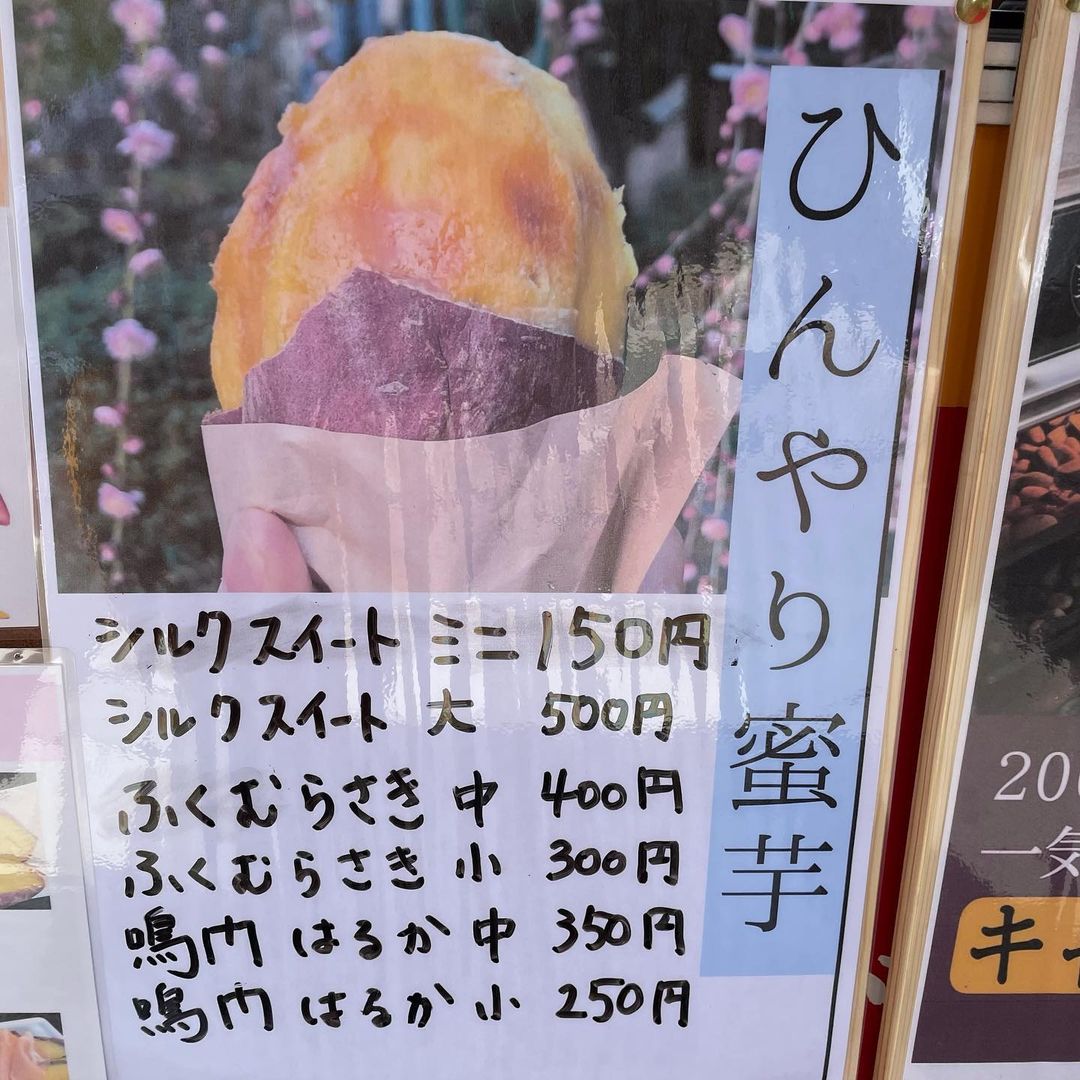 ひんやり蜜芋
シルクスイート ミニ 150円
シルクスイート 大 500円
ふくむらさき 中 400円
ふくむらさき 小 300円
鳴門 はるか 中 350円
鳴門 はるか 小 250円
200
一気
キ